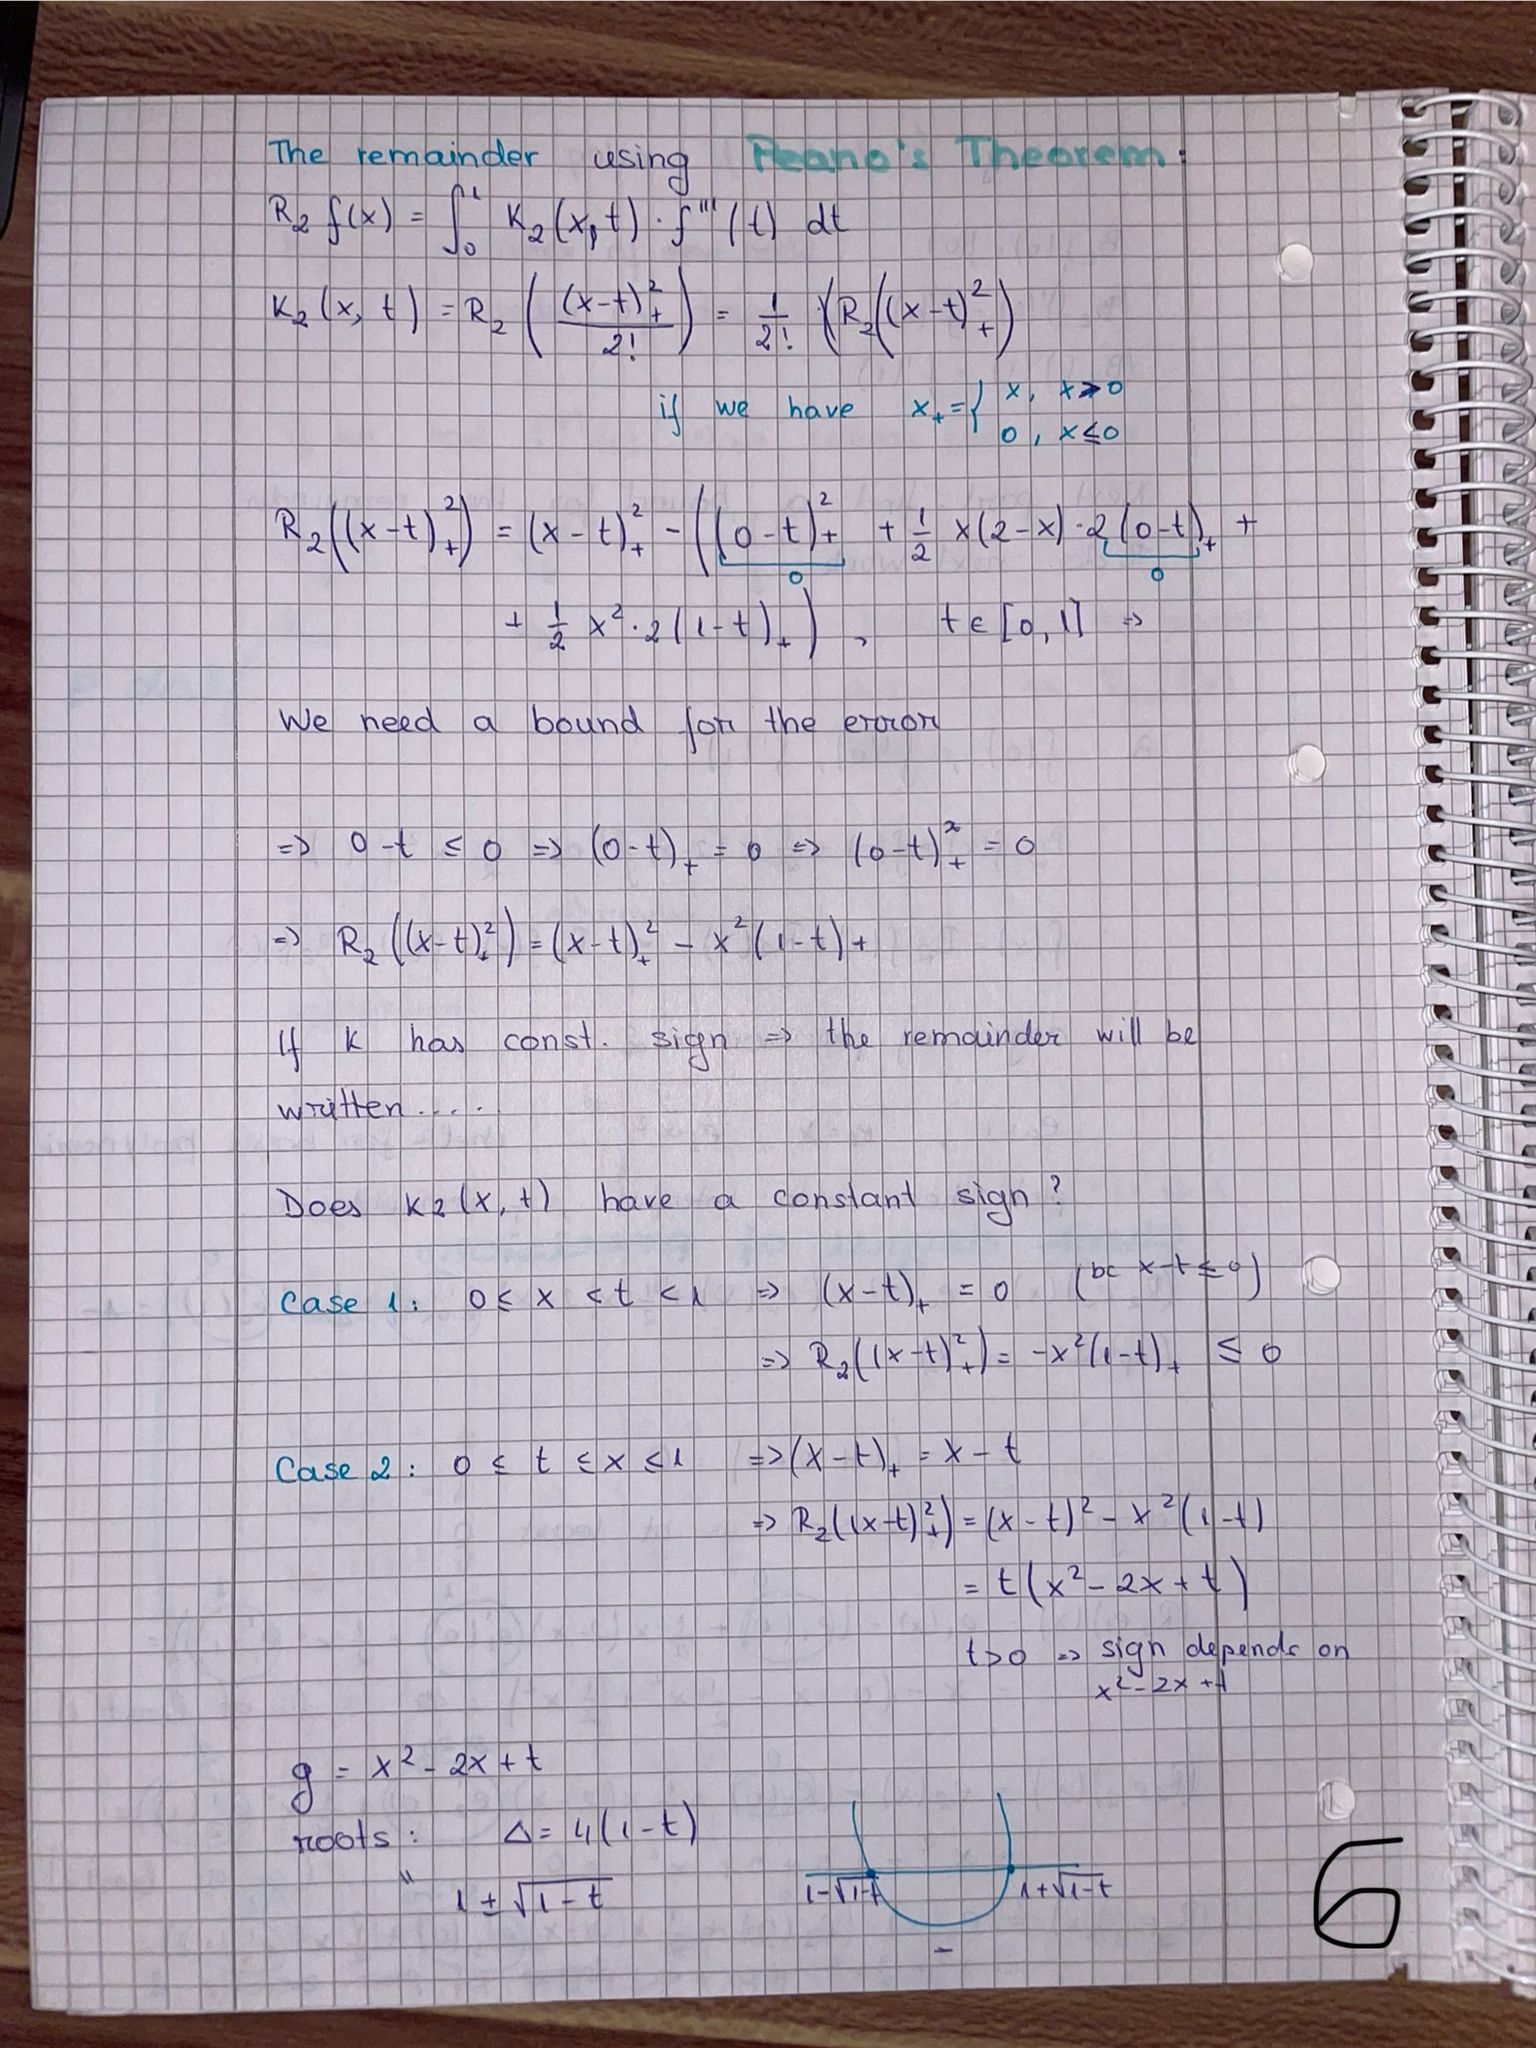 The remainder using Peano's Theorem:
R₂ f(x) = ∫₀¹ K₂(x, t) · f'''(t) dt
K₂(x, t) = R₂ ( (x-t)₊² / 2! ) = 1/2! (R₂((x-t)₊²)
if we have x₊ = { x, x > 0
0, x ≤ 0
R₂((x-t)₊²) = (x-t)₊² - ((0-t)₊² + 1/2 x(2-x) · 2(0-t)₊ +
0 0
+ 1/2 x² · 2(1-t)₊), t ∈ [0,1] ⇒
We need a bound for the error
⇒ 0-t ≤ 0 ⇒ (0-t)₊ = 0 ⇒ (0-t)₊² = 0
⇒ R₂((x-t)₊²) = (x-t)₊² - x²(1-t)₊
If K has const. sign ⇒ the remainder will be
written ....
Does K₂(x, t) have a constant sign?
Case 1: 0 ≤ x < t < 1 ⇒ (x-t)₊ = 0 (bc x-t ≤ 0)
⇒ R₂((x-t)₊²) = -x²(1-t)₊ ≤ 0
Case 2: 0 ≤ t ≤ x ≤ 1 ⇒ (x-t)₊ = x-t
⇒ R₂((x-t)₊²) = (x-t)² - x²(1-t)
= t(x² - 2x + t)
t>0 ⇒ sign depends on
x² - 2x + t
g = x² - 2x + t
roots: Δ = 4(1-t)
" 1 ± √(1-t)
1-√(1-t) 1+√(1-t)
-
6